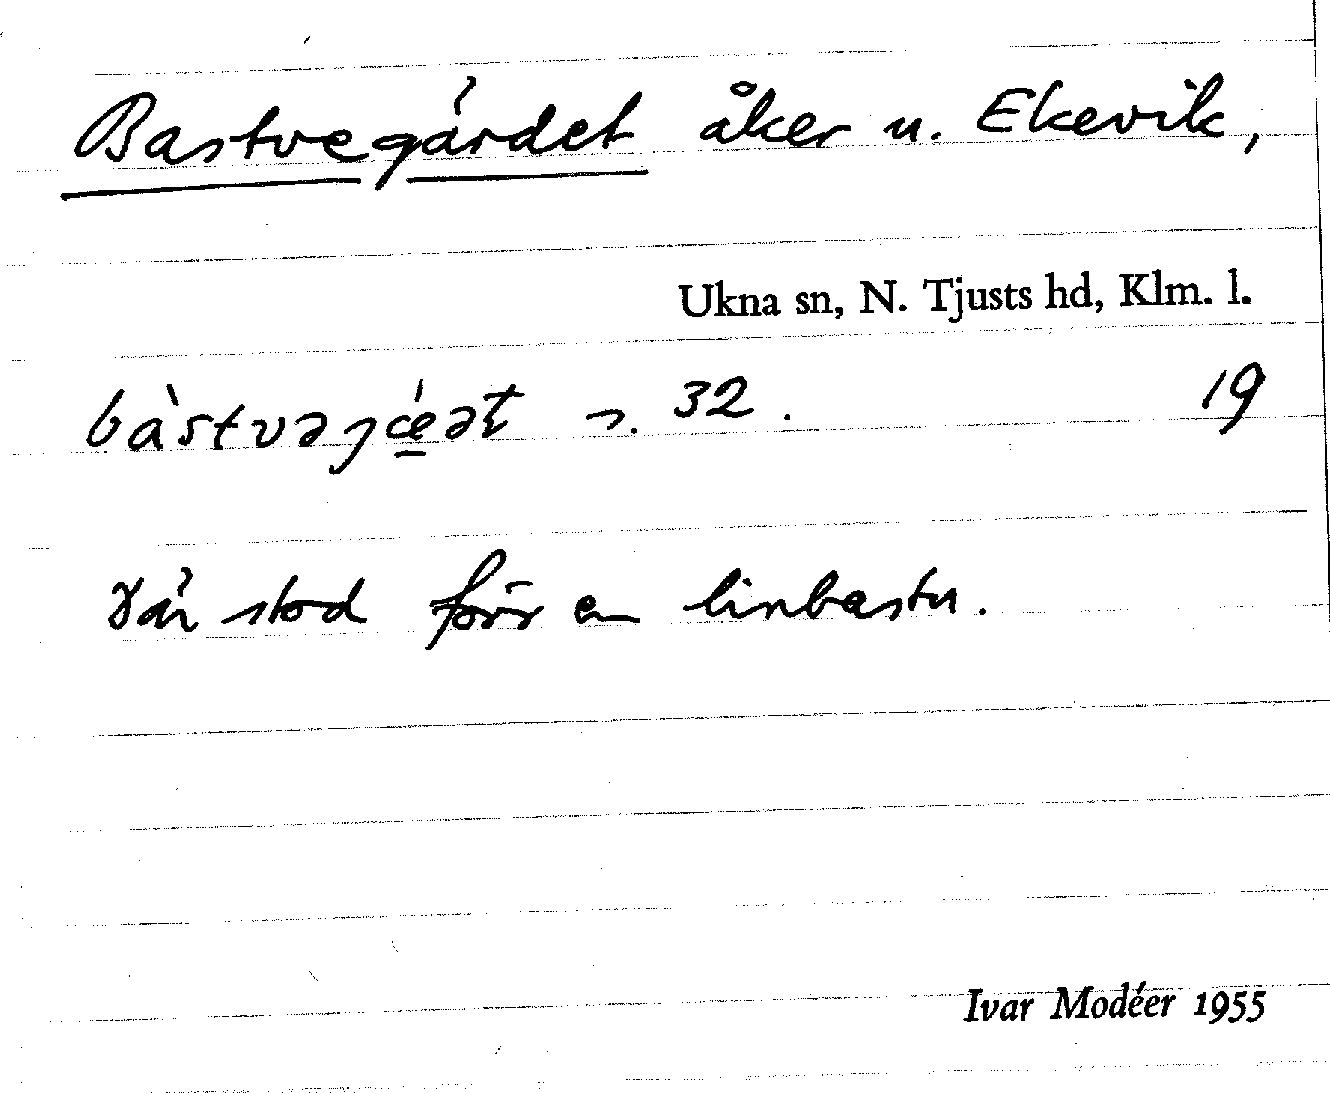 Bastvegärdet åker u. Ekevik,
Ukna sn, N. Tjusts hd, Klm. l.
19
där stod förr en linbastu.
Ivar Modéer 1955